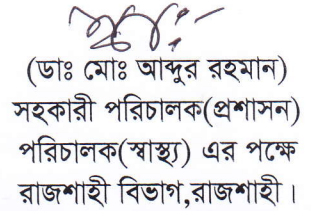 (ডাঃ মোঃ আব্দুর রহমান)
সহকারী পরিচালক(প্রশাসন)
পরিচালক(স্বাস্থ্য) এর পক্ষে
রাজশাহী বিভাগ,রাজশাহী।